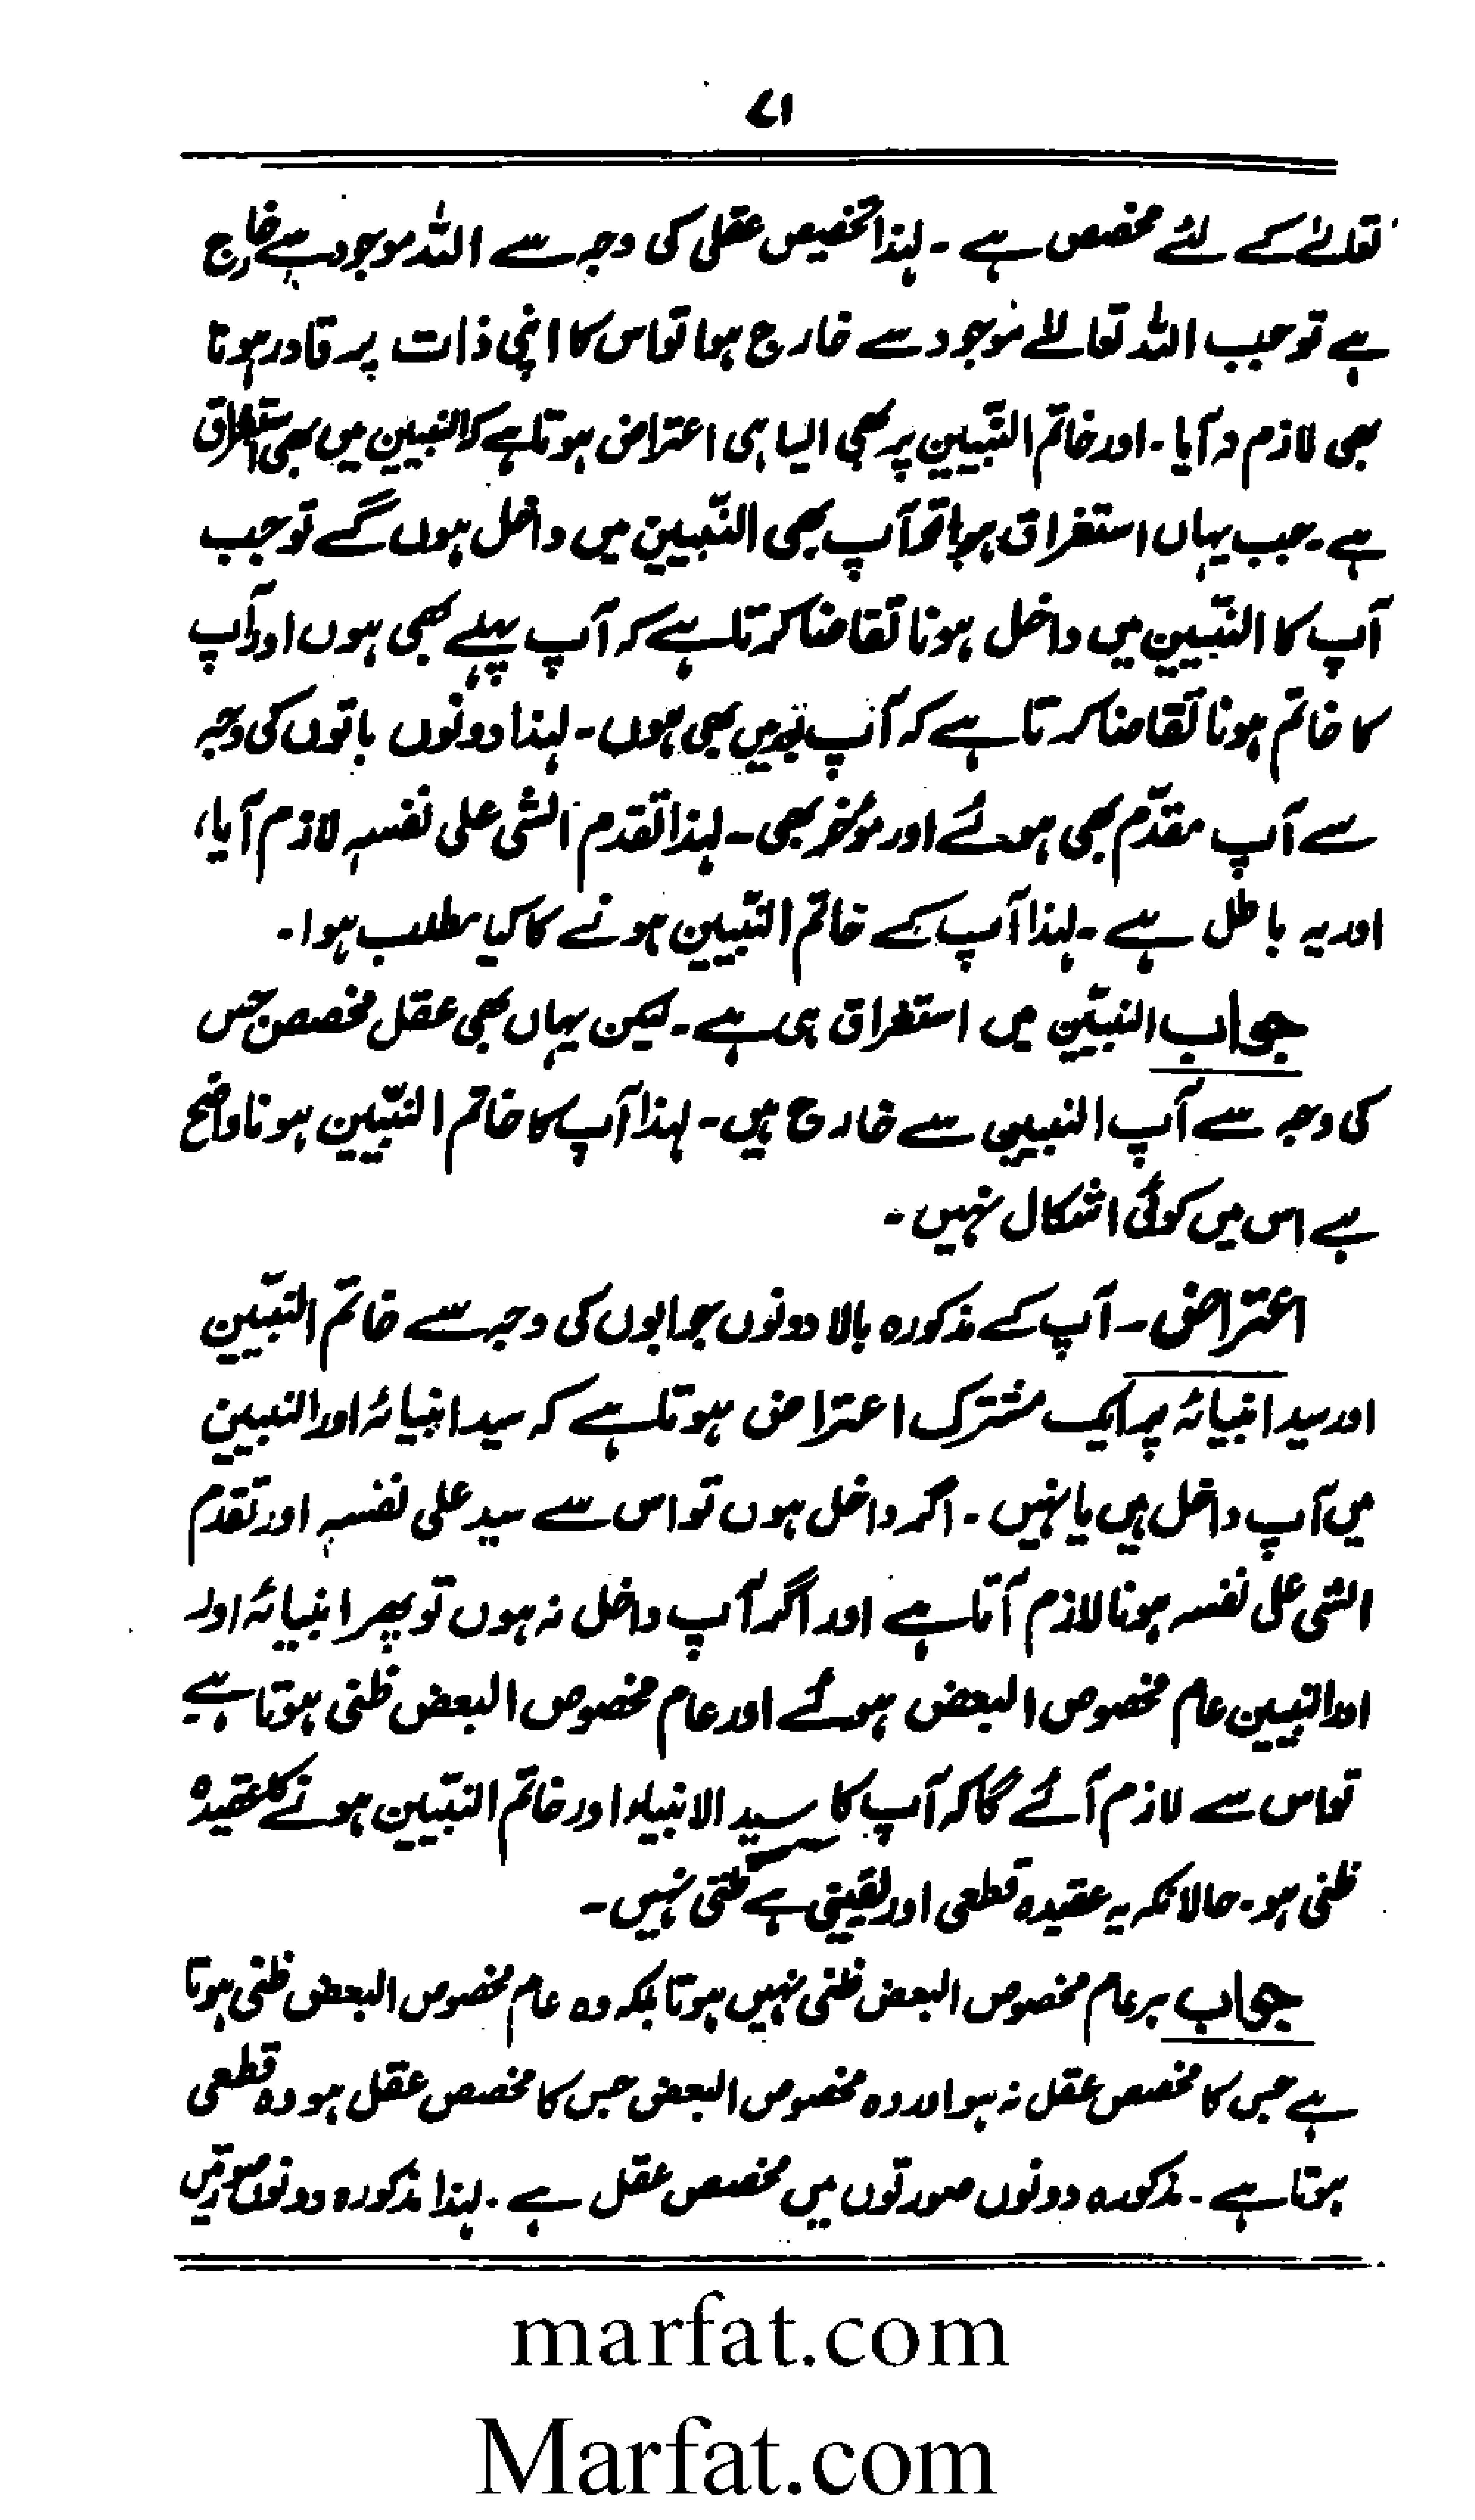 ۷۱
تعالےٰ کے لئے مخصص ہے ۔ لہٰذا تخصیص عقلی کی وجہ سے اللہ موجود سے خارج
ہے تو جب اللہ تعالےٰ موجود سے خارج ہوا تو اس کا اپنی ذات پر قادر ہونا
بھی لازم نہ آیا ۔ اور خاتم النبّیین پر بھی ایسا ہی اعتراض ہوتا ہے کہ النبیین میں بھی استغراق
ہے ۔ جب یہاں استغراق ہوا تو آپ بھی النبّیین میں داخل ہوں گے تو جب
آپ کا النبّیین میں داخل ہونا تقاضا کرتا ہے کہ آپ پہلے بھی ہوں اور آپ
کا خاتم ہونا تقاضا کرتا ہے کہ آپ بعد میں بھی ہوں ۔ لہٰذا دونوں باتوں کی وجہ
سے آپ مقدّم بھی ہوئے اور مؤخر بھی ۔ لہذا تقدم الشی علی نفسہٖ لازم آیا،
اور یہ باطل ہے ۔ لہذا آپ کے خاتم النبّیین ہونے کا کیا مطلب ہوا ۔
جواب النبیّین میں استغراق ہی ہے ۔ لیکن یہاں بھی عقل مخصص جس
کی وجہ سے آپ النبیین سے خارج ہیں ۔ لہذا آپ کا خاتم النبّیین ہونا واضح
ہے اس میں کوئی اشکال نہیں ۔
اعتراض ۔ آپ کے مذکورہ بالا دونوں جوابوں کی وجہ سے خاتم النبّیین
اور سید انبیائہ پر ایک مشترک اعتراض ہوتا ہے کہ سید انبیائہ اور النبیین
میں آپ داخل ہیں یا نہیں ۔ اگر داخل ہوں تو اس سے سید علی نفسہٖ اور تقدم
الشی علی نفسہ ہونا لازم آتا ہے اور اگر آپ داخل نہ ہوں تو پھر انبیائہ اور
اور النبیین عام مخصوص البعض ہوئے اور عام مخصوص البعض ظنی ہوتا ہے
تو اس سے لازم آئے گا کہ آپ کا سید الانبیاء اور خاتم النبّیین ہونے کا عقیدہ
ظنی ہو ۔ حالانکہ یہ عقیدہ قطعی اور یقینی ہے ظنّی نہیں ۔
جواب ہر عام مخصوص البعض ظنی نہیں ہوتا بلکہ وہ عام مخصوص البعض ظنی ہوتا
ہے جس کا مخصص عقل نہ ہو اور وہ مخصوص البعض جس کا مخصص عقل ہو وہ قطعی
ہوتا ہے ۔ مذکورہ دونوں صورتوں میں مخصص عقل ہے ۔ لہذا مذکورہ دونوں صورتیں
marfat.com
Marfat.com